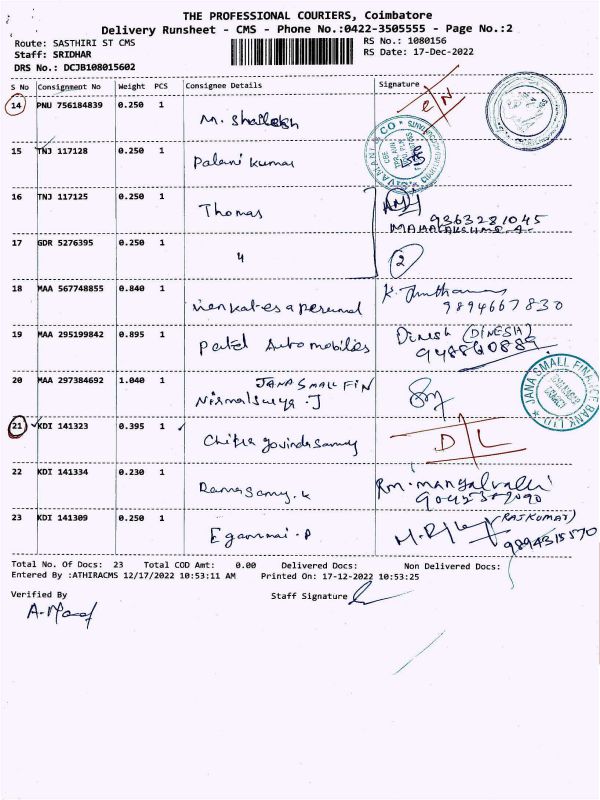 THE PROFESSIONAL COURIERS, Coimbatore
Delivery Runsheet - CMS - Phone No.:0422-3505555 - Page No.:2
Route: SASTHIRI ST CMS RS No.: 1080156
Staff: SRIDHAR RS Date: 17-Dec-2022
DRS No.: DCJB108015602
S No Consignment No Weight PCS Consignee Details Signature
14 PNU 756184839 0.250 1 M. Shailesh
15 TNJ 117128 0.250 1 Palani Kumar
16 TNJ 117125 0.250 1 Thomas 9363281045
17 GDR 5276395 0.250 1 4 2
18 MAA 567748855 0.840 1 9894667830
19 MAA 295199842 0.895 1 Patel Automobiles Dinesh (DINESH)
20 MAA 297384692 1.040 1 JANA SMALL FIN
Nirmalsurya.J
JANA SMALL FINANCE BANK LTD
21 KDI 141323 0.395 1 Chitra govindasamy D/L
22 KDI 141334 0.230 1 Ramasamy.K
23 KDI 141309 0.250 1 (RAJKUMAR)
9894315570
Total No. Of Docs: 23 Total COD Amt: 0.00 Delivered Docs: Non Delivered Docs:
Entered By :ATHIRACMS 12/17/2022 10:53:11 AM Printed On: 17-12-2022 10:53:25
Verified By Staff Signature